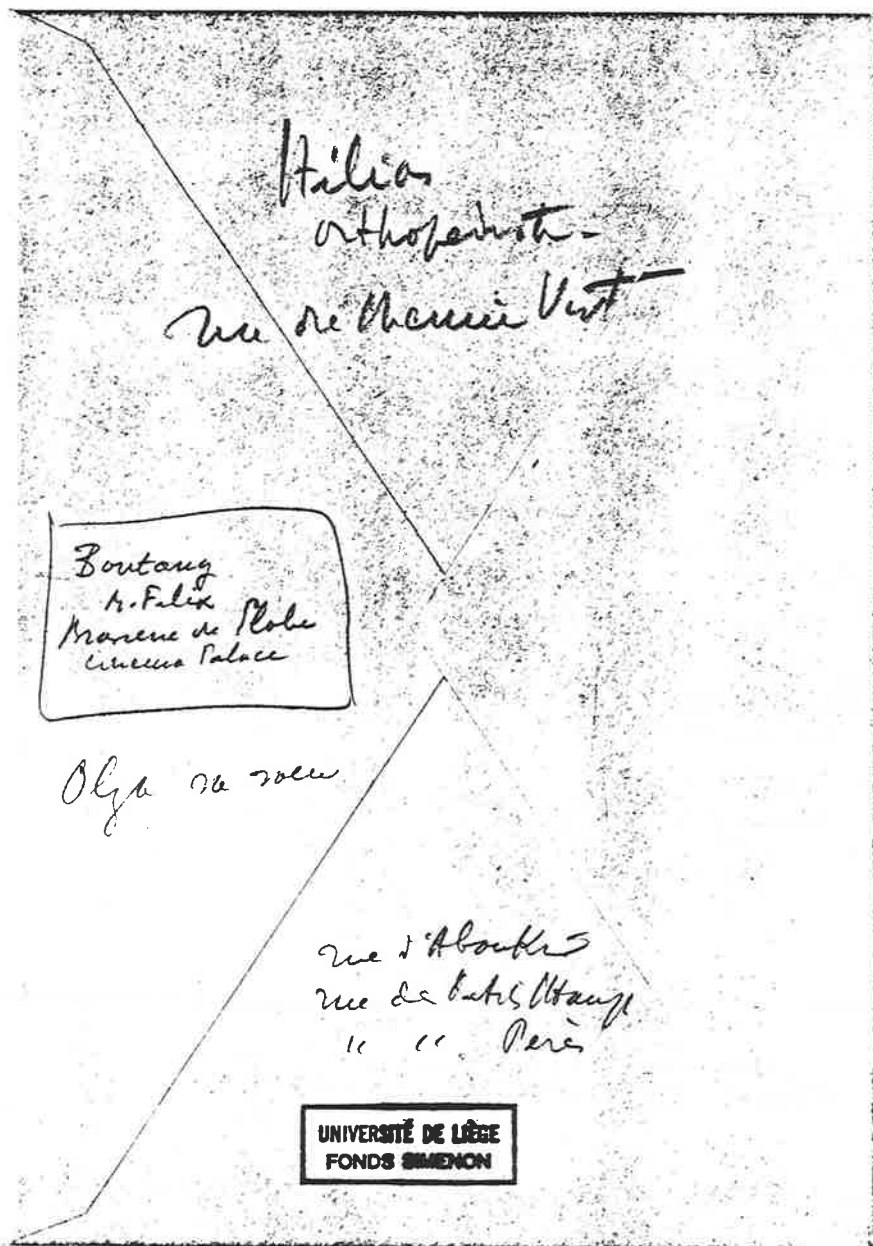 Hélias
orthopédiste
rue du Chemin Vert
Boutang
M. Félix
Brasserie du Globe
Cinéma Palace
Olga sa sœur
rue d'Aboukir
rue des Petits Champs
" " Pères
UNIVERSITÉ DE LIÈGE
FONDS SIMENON